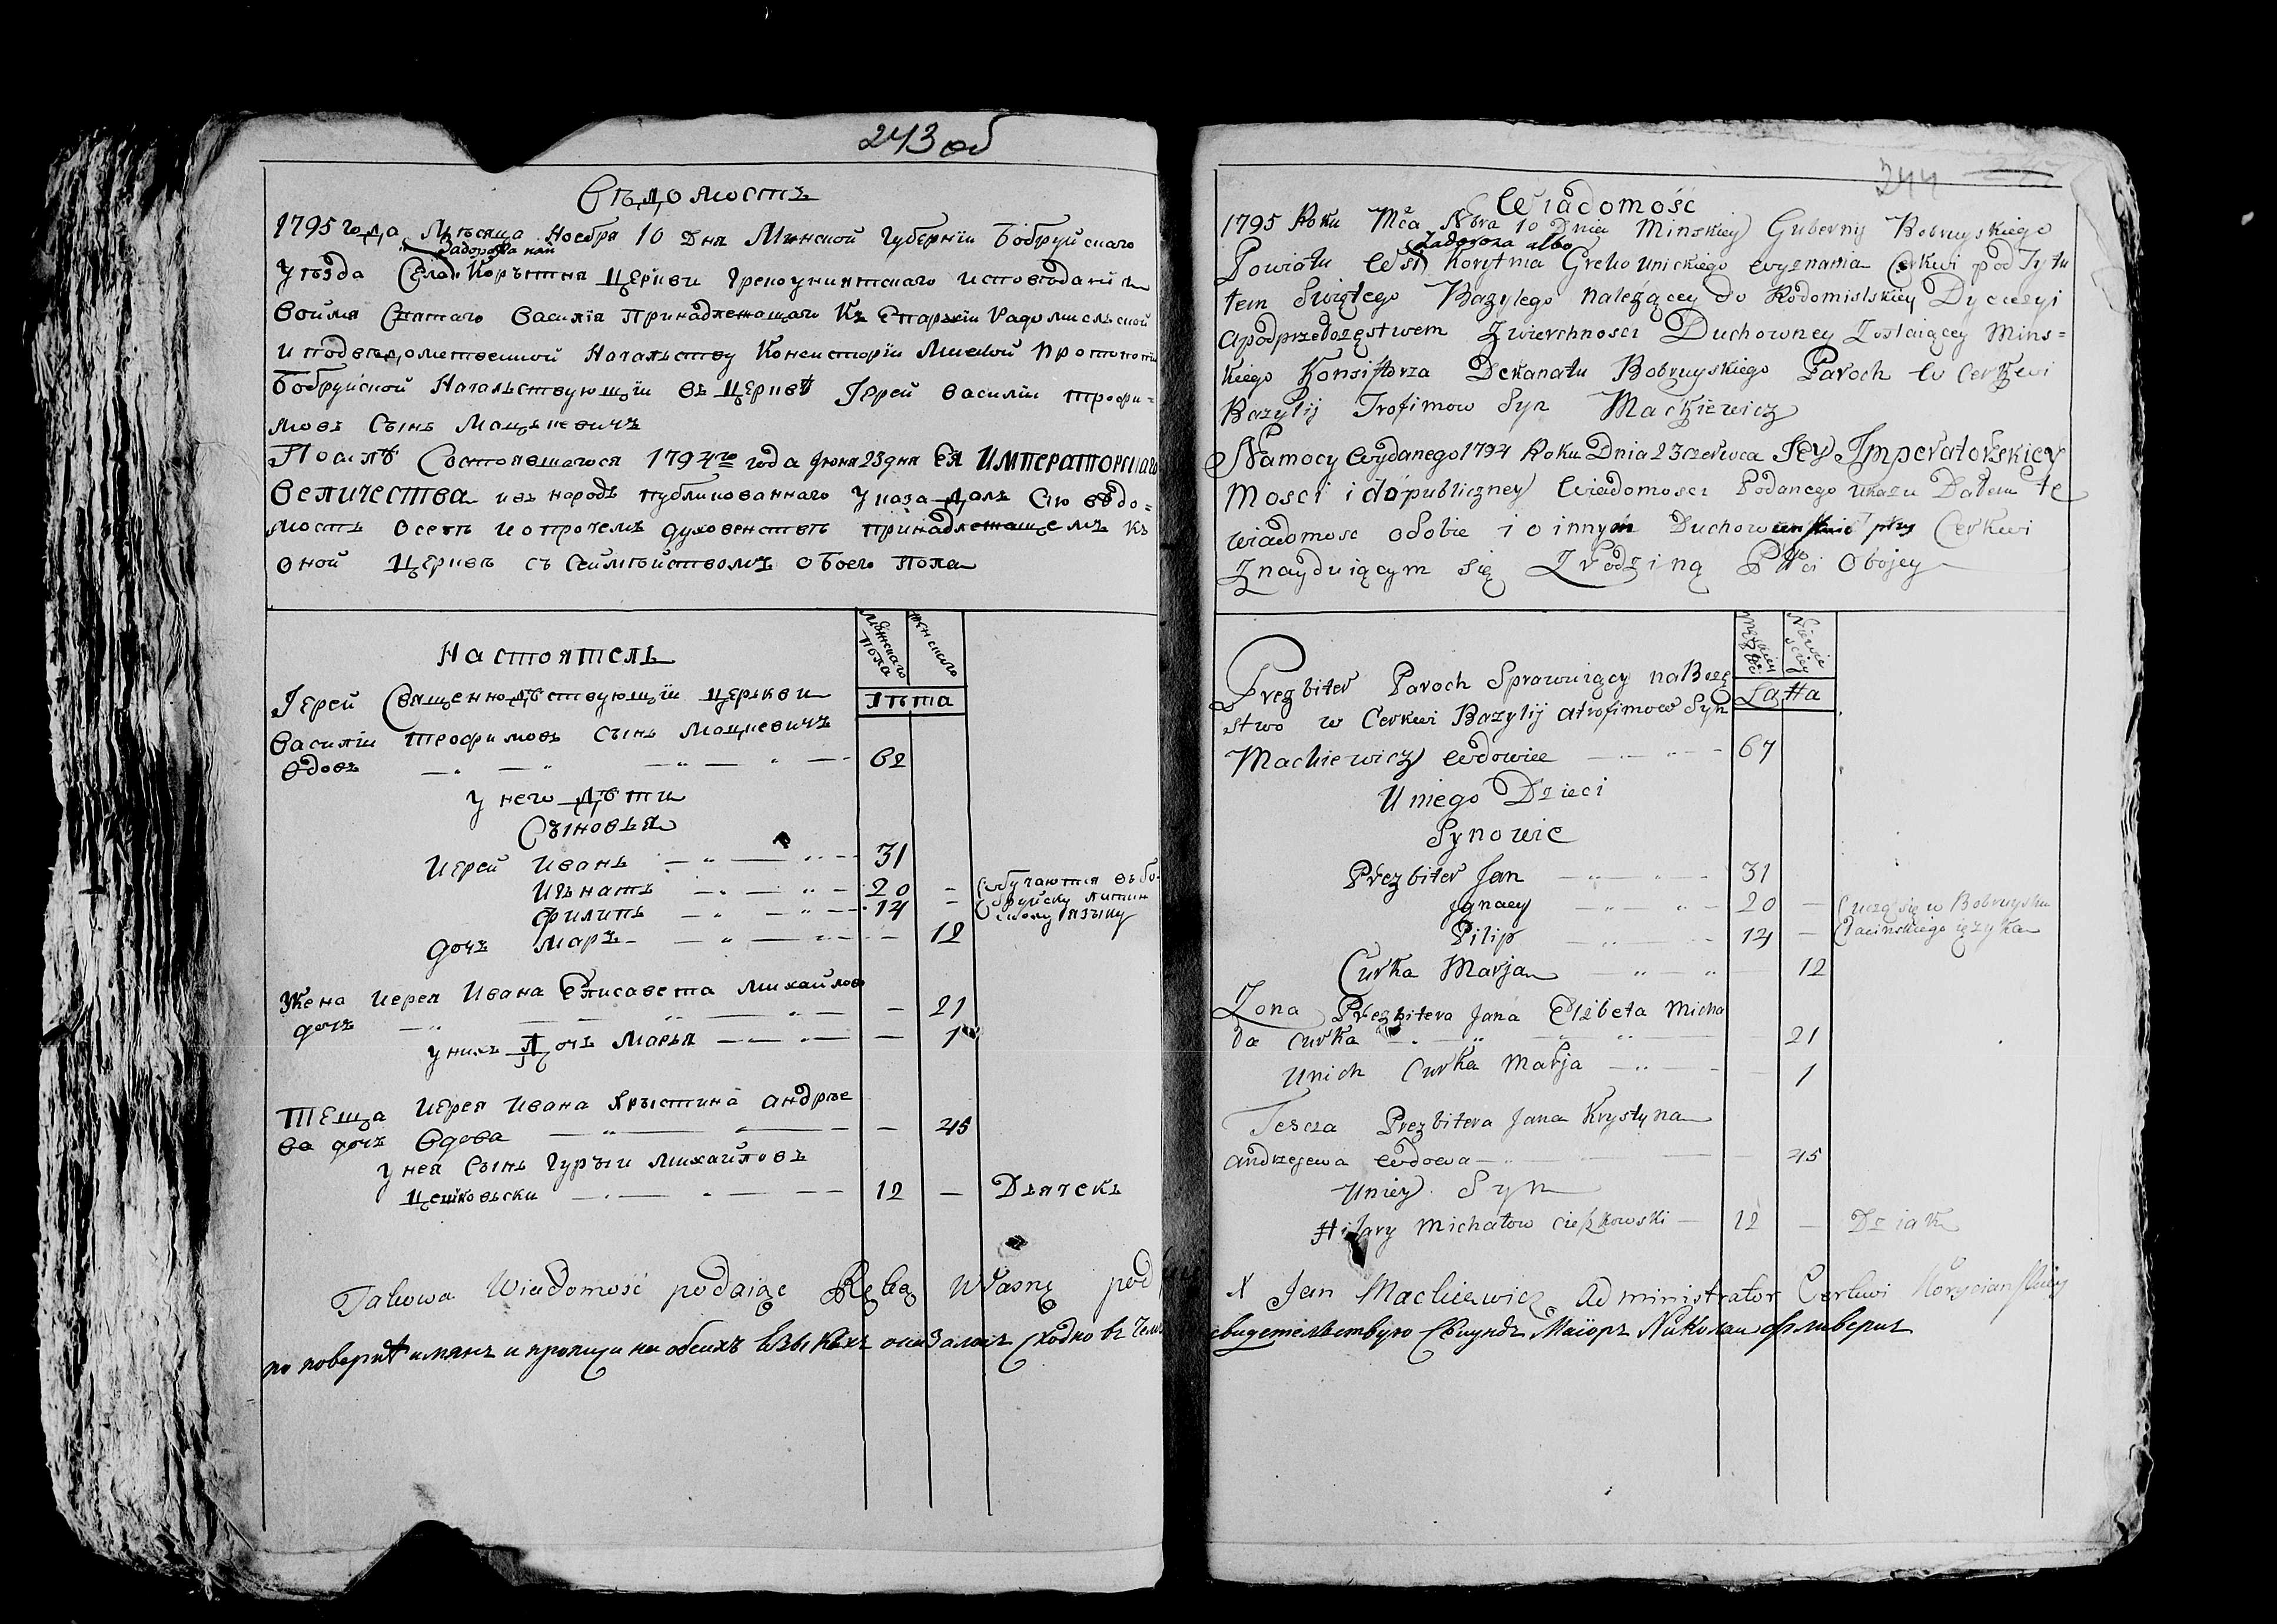 243 об
Вѣдомость
1795 года Мѣсяца Ноебря 10 Дня Минской Губернїи Бобруйскаго
Задорожа или
Уѣзда Села Корытна Церкви Грекоуниятскаго исповѣданїя
Воимя Святаго Василїя Принадлежащаго Къ Епархїи Радомисльской
и подвѣдомственной Начальству Консисторїи Минской Протопопїи
Бобруйской Начальствующїи въ Церквѣ Іерей Василїи Трофи=
мовъ Сынъ Мацкевичъ
Послѣ Состоявшагося 1794го года Июня 23 дня Ея Императорскаго
Величества ивъ народъ публикованнаго Указа Далъ Сїю вѣдо=
мость Осебѣ и опрочемъ духовенствѣ принадлежащемъ къ
оной Церквѣ съ Сеймѣйствомъ обоего пола
Мужскаго Пола
женскаго
Настоятель
Лѣта
Іерей Священнодѣйствующїи церкви
Василїи Трофимовъ Сынъ Мацкевичъ
вдовъ 62
У него Дѣти
Сыновья
Иерей Иванъ 31
Игнатъ 20 - обучаются въ Бо-
Филипъ 14 - бруйску латин
скому языку
дочь Маръ 12
Жена Иерея Ивана Елисавета Михайлов
дочь - 21
У нихъ Дочь Марья - 1
Теща Иерея Ивана Крыстина Андрее
ва дочь Вдова - 45
У нея Сынъ Гурыи Михайловъ
Цешковьски 12 - Дьячекъ
Takowa Wiadomość podaiąc Ręką Własną pod
по поверке имянъ и прописи на обеихъ языкахъ оказалось сходно въ чемъ
244
Wiadomość
1795 Roku Mca Nbra 10 Dnia Minskiey Guberny Bobruyskiego
Zadoroza albo
Powiatu Wsi Korytnia Greko Unickiego wyznania Cerkwi pod Tytu
łem Swiętego Bazylego należącey do Rodomislskiey Dyecezyi
a pod przedozęstwem Zwierchnosci Duchowney Zostaiącey Mins=
kiego Konsistorza Dekanatu Bobruyskiego Paroch w Cerkwi
Bazylij Trofimow Syn Mackiewicz
Namocy wydanego 1794 Roku Dnia 23 czerwca Jey Imperatorskiey
Mosci i do publiczney Wiadomosci Podanego ukazu Dałem tę
wiadomosc o sobie i o innym Duchowienstwie przy Cerkwi
Znayduiącym się Z rodziną Płci Obojey
Lata
Prezbiter Paroch Sprawuiący naBozę
stwo w Cerkwi Bazylij atrofimow Syn
Mackiewicz wdowiec 67
U niego Dzieci
Synowie
Prezbiter Jan 31
Jgnacy 20 - uczą się w Bobruysku
Pilip 14 - Łacinskiego ięzyka
Curka Marja 12
Zona Prezbitera Jana Elzbeta Micha
ła Curka 21
Unich Curka Marja 1
Tescza Prezbitera Jana Krystyna
Andrzejewa wdowa 45
Uniey Syn
Hilary Michałow Cieszkowski 12 - Dziak
X Jan Mackiewicz Administrator Cerkwi
свидетельствую Секундъ Маіоръ Николаи